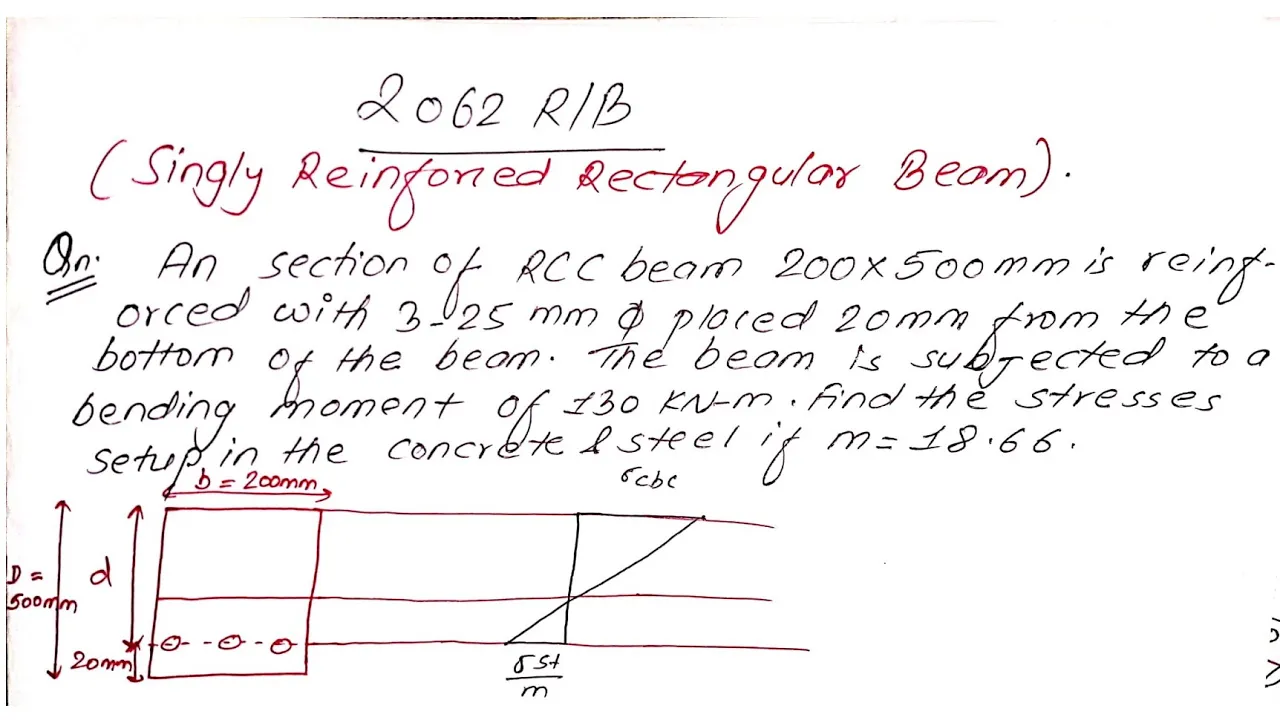 2062 R/B
(Singly Reinforced Rectangular Beam).
Qn. An section of RCC beam 200x500mm is reinf-
orced with 3-25 mm ϕ placed 20mm from the
bottom of the beam. The beam is subjected to a
bending moment of 130 KN-m. Find the stresses
setup in the concrete & steel if m= 18.66.
b = 200mm
σcbc
D =
500mm
d
20mm
σst
m